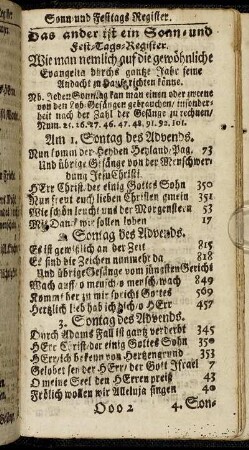 Sonn- und Festtags Register.
Das ander ist ein Sonn- und
Fest-Tags-Register.
Wie man nemlich auf die gewöhnliche
Evangelia durchs gantze Jahr seine
Andacht im Hause richten könne.
Nb. Jeden Sonntag kan man einen oder zweene
von den Lob-Gesängen gebrauchen, insonder-
heit nach der Zahl der Gesänge zu rechnen,
Num. 25. 26. 27. 46. 47. 48. 91. 92. 101.
Am 1. Sontag des Advends.
Nun komm der Heyden Heyland, Pag. 73
Und übrige Gesänge von der Menschwer
dung Jesu Christi.
HErr Christ, der einig Gottes Sohn 350
Nun freut euch lieben Christen gmein 351
Wie schön leucht uns der Morgenstern 53
Mit Danck wir sollen loben 17
2. Sontag des Advends.
Es ist gewißlich an der Zeit 815
Es sind die Zeichen nunmehr da 818
Und übrige Gesänge vom jüngsten Gericht
Wach auff o mensch o mensch wach 849
Komm her zu mir spricht Gottes 509
Hertzlich lieb hab ich dich o HErr 457
3. Sontag des Advends.
Durch Adams Fall ist gantz verderbt 345
HErr Christ der einig Gottes Sohn 350
HErr, ich bekenn von Hertzengrund 353
Gelobet sey der HErr, der Gott Israel 7
O meine Seel den HErren preiß 43
Frölich wollen wir Alleluja singen 40
Ooo 2 4. Son-